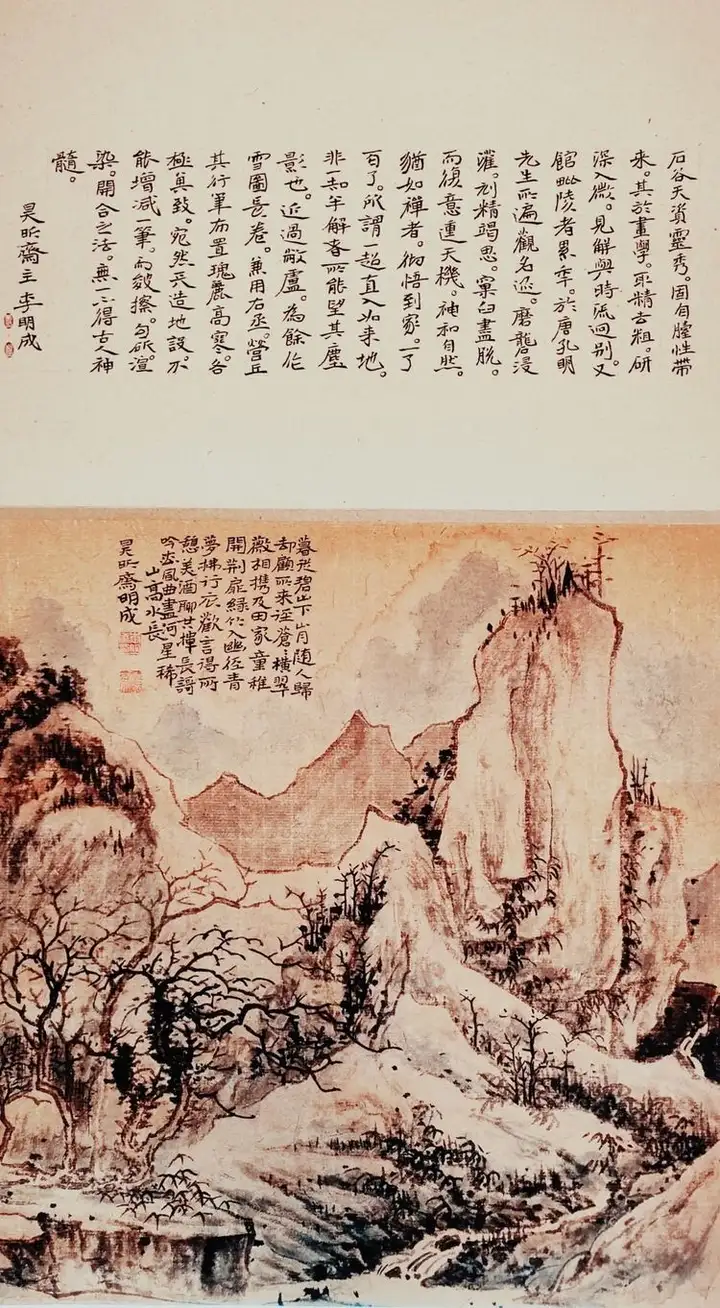 石谷天資靈秀。固自膸性帶
來。其於畫學。取精去粗。研
深入微。見解與時流迥别。又
館毗陵者累年。於唐孔明
先生所遍觀名迹。磨礲浸
灌。刳精竭思。窠臼盡脫。
而復意連天機。神和自然。
猶如禪者。彻悟到家。一了
百了。所謂一超直入如来地。
非一知半解者所能望其塵
影也。近過敝盧。為餘作
雪圖長卷。兼用右丞。營丘
其行筆布置瑰麗高寒。各
極真致。宛然天造地設。不
能增減一筆。而皴擦。勾斫。渲
染。開合之法。無一不得古人神
髓。
昊昕齋主 李明成
暮從碧山下山月随人歸
却顧所来迳蒼〻橫翠
薇相携及田家童稚
開荆扉綠竹入幽徑青
夢拂行衣歡言得所
憩美酒聊共揮長謌
吟松風曲盡河星稀
山高水長
昊昕齋明成